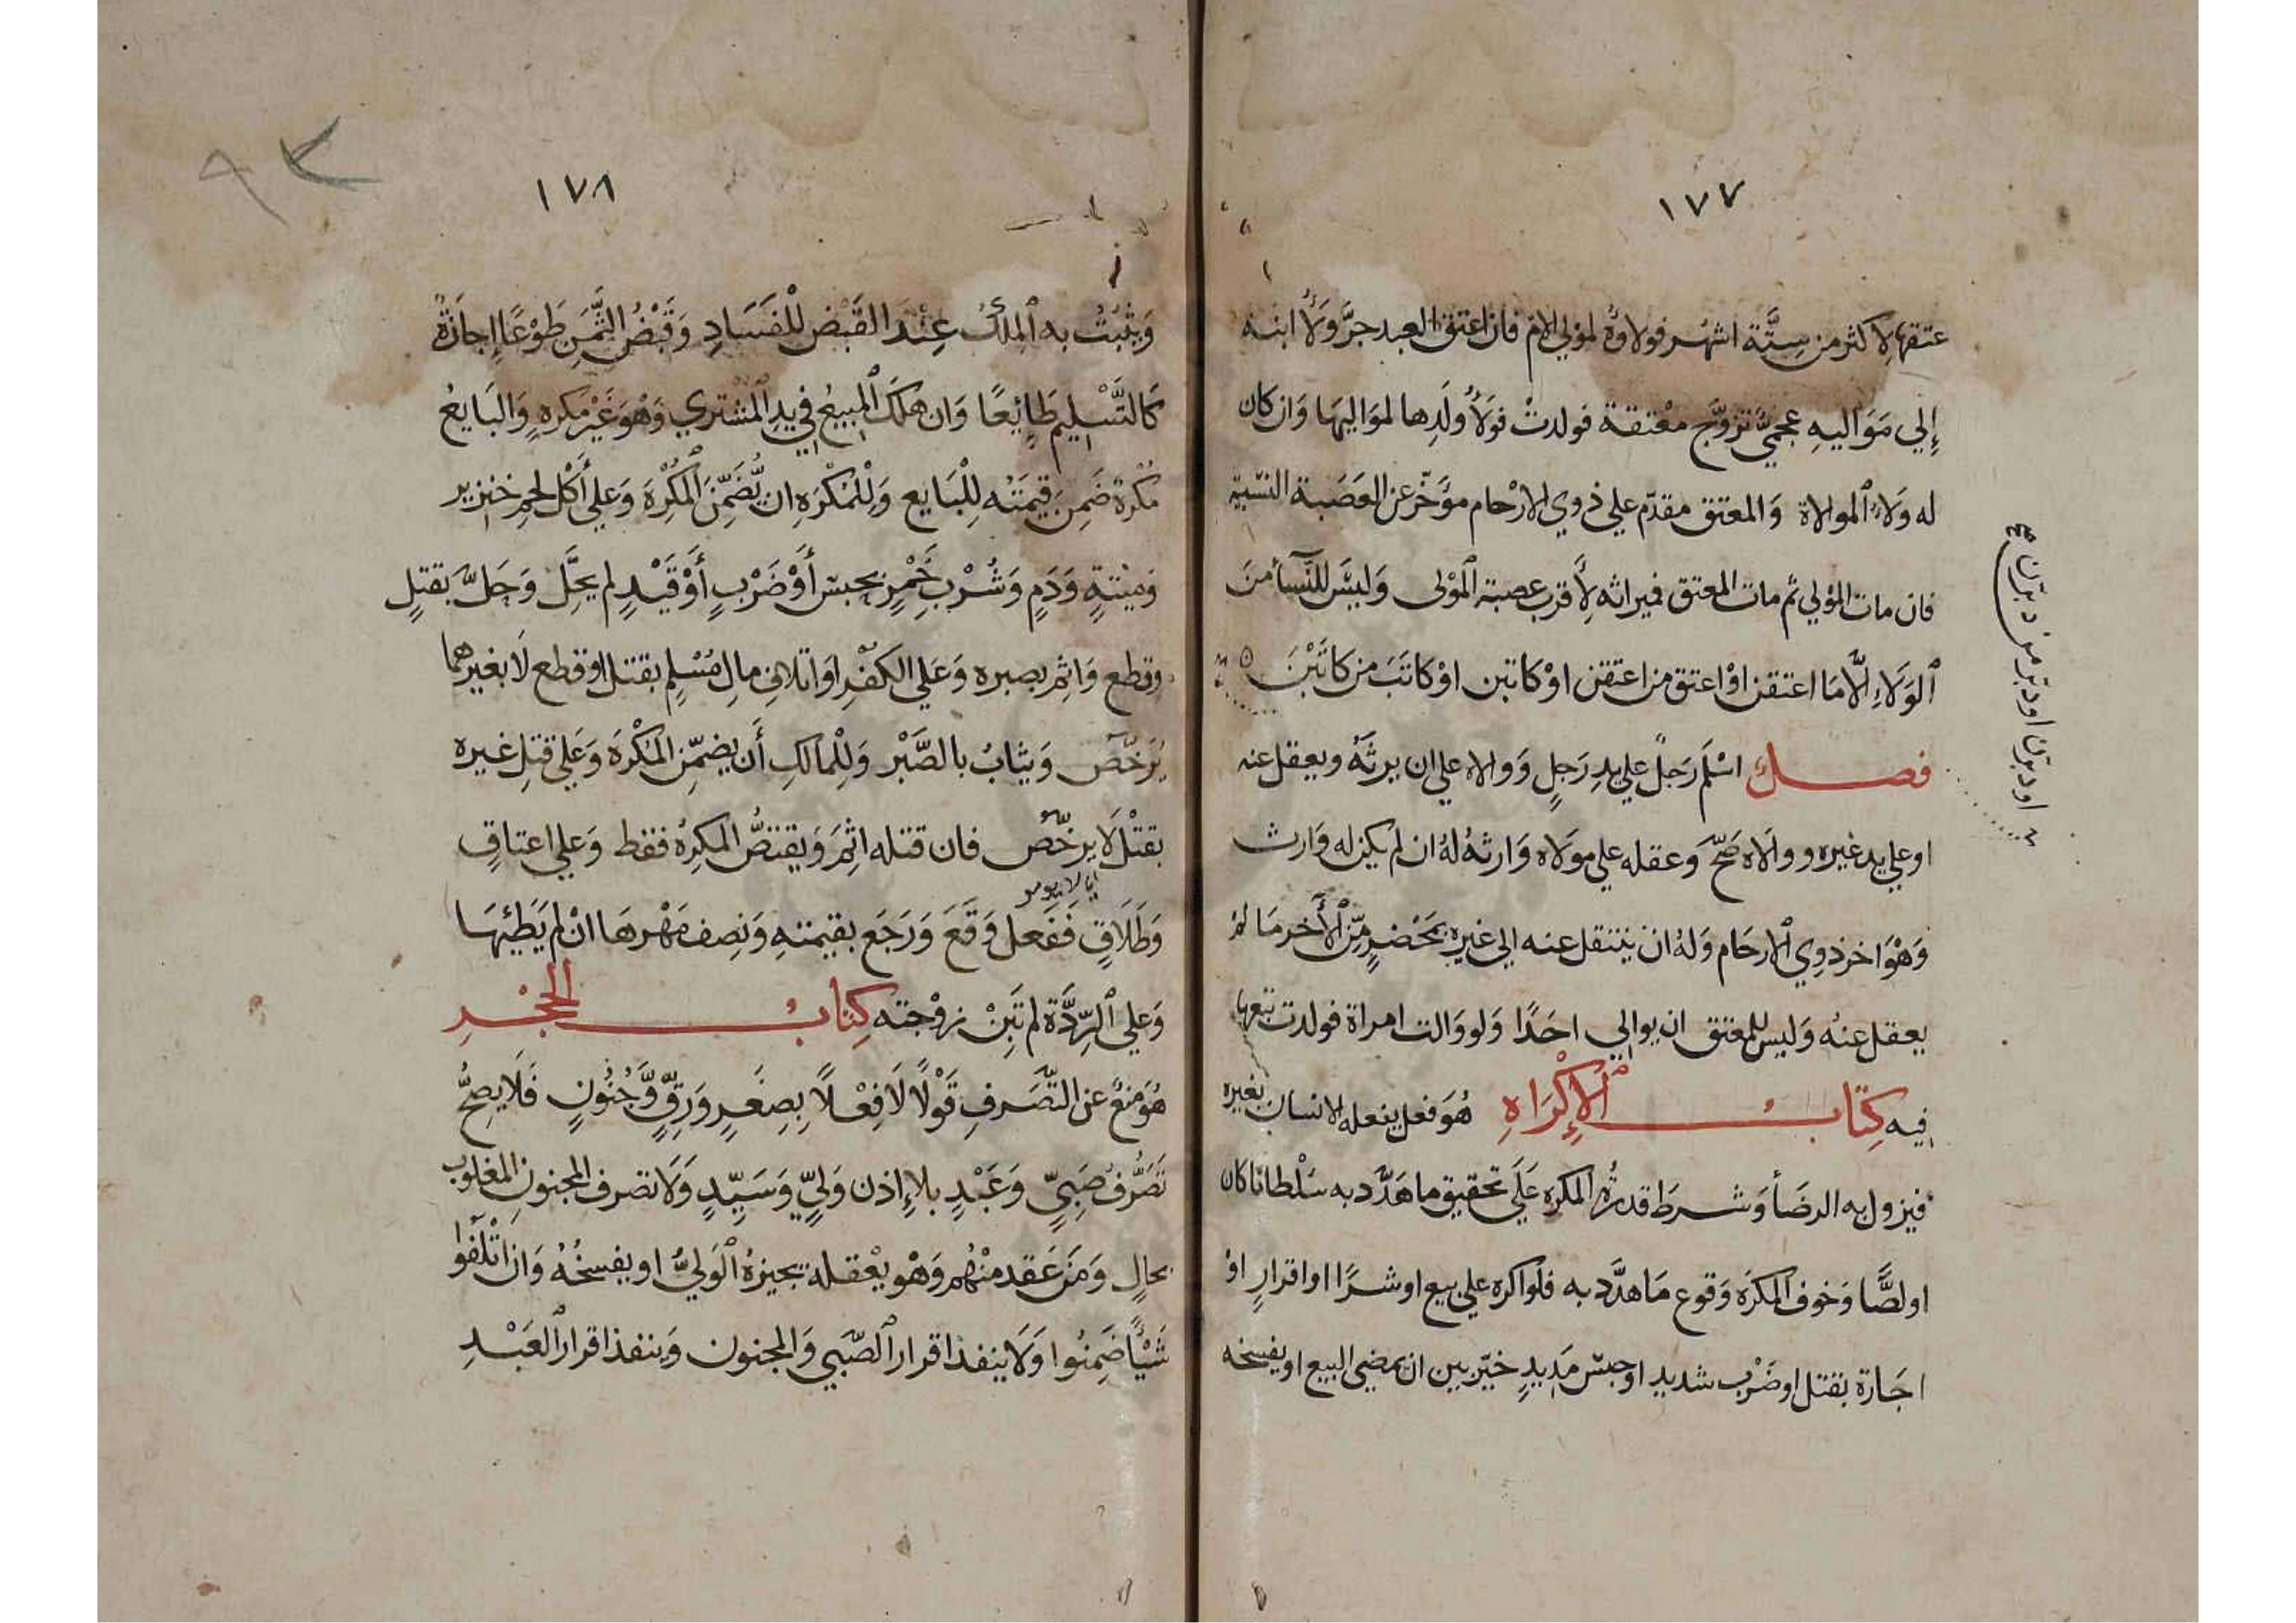 ١٧٧
عتقها لاكثر من سِتَّة اشهر فولاؤه لمولي الام فان اعتق العبد جرَّ وَلَاَ ابنه
إِلي مَوَاليهِ عجميٌّ تزوّج معْتقة فولدتْ فَوَلَاُ ولَدِها لموَاليهَا وَان كان
له وَلَاءُ الموالاة وَالمعتق مقدّم علي ذوي الارْحام مؤَخّر عن العَصَبة النسْبية
فان مات المؤلي ثم مات المعتق فميراثه لِأَقرب عصبة المَوْلى وَليسَ للنّسآء منَ
الوَلَاءِ الَّا مَا اعتقن اوْ اعتق من اعتقن اوْ كاتبن اوْ كاتَبَ من كاتَبْنَ
او دبرن او دبّر من دبّرن صح
فصل اسْلَم رَجلٌ علي يدِ رَجلٍ وَوالاه علي ان يرثَهُ ويعقل عنه
او علي يد غيره ووالَاه صَحّ وعقله علي مولَاه وَارثهُ لهُ ان لم يكن له وَارث
وَهْوَ اخر ذوِي الارحَام وَلهُ ان ينتقل عنه الي غيره بمَحْضَرٍ مِّن الأَخر مَا لمْ
يعقل عنهُ وَليس للمعتق ان يوالي احَدًا وَلو وَالت امراة فولدت تبعها
فيه كِتَابُ الإِكْرَاهِ هُوَ فعل يفعله الانسان بغيره
فيزول به الرضَا وَشرطَ قدرةُ المكرِه عَلَي تحقيق ما هَدَّد به سَلْطانا كان
او لصًّا وَخوف المكرَه وَقوع مَا هدَّد به فلو اكره علي بيع او شرًا او اقرارٍ اوْ
اجَارة بقتل او ضَرْبٍ شديدٍ او حبسٍ مَدِيدٍ خيّر بين ان يمضي البيع او يفسخه
١٧٨
وَيثْبُتُ به المِلْكُ عِنْدَ القَبْضِ للْفَسَادِ وَقَبْضُ الثَّمَنِ طَوْعًا إجازَةٌ
كَالتَّسْلِيمِ طَائِعًا وَان هلكَ المَبيعُ في يدِ المشْتري وَهْوَ غَيْر مكرهٍ وَالبَايعُ
مُكْرَهٌ ضَمِنَ قِيمَتَه لِلْبَايع وَلِلْمُكْرَهِ ان يُضَمِّنَ المُكْرِهَ وَعلي أَكْل لحمِ خنزير
وَميْتةٍ وَدَمٍ وَشُرْبِ خَمْرٍ بحبس أَوْ ضَرْبٍ أَوْ قَيْدٍ لم يحَّل وَحَلَّ بقتلٍ
وقطع وَاثِم بصبره وَعَلي الكُفْرِ اوَ اتلافِ مالِ مُسْلِمٍ بقتل او قطع لَا بغيرهما
يُرَخَّصُ وَيثابُ بالصَّبْر وَلِلْمالكِ أَن يضمّن المُكْرِهَ وَعَلي قتلِ غيره
بقتْلٍ لَا يرخَّصُ فان قتله اثِمَ وَيقتصُّ المكرِهُ فقط وَعَلي اعتاقٍ
وَطَلَاقٍ فَفَعل وَقَعَ وَرَجَع بقيمتهِ وَنِصف مَهْرهَا انْ لم يَطَئْهَا
وَعلي الرِّدَّة لم تَبِنْ زوْجته كِتابُ الحَجْرِ
هُوَ مَنعٌ عن التّصَرفِ قَوْلًا لَا فِعْلًا بِصِغَرٍ وَرِقٍّ وَّجُنُونٍ فَلَا يصِحُّ
تَصَرُّفُ صَبِيٍّ وَعَبْدٍ بلا إذن وَليٍّ وَسَيِّدٍ وَلَا تصرف المجنونِ المغلوب
بحالٍ وَمَن عَقد منْهُم وَهْو يعْقله يجيزهُ الوَليُّ او يفسخُهُ وَان اتْلَفُوا
شَيْأً ضَمِنُوا وَلَا ينفذ اقرار الصّبي وَالمجنون وَينفذ اقرار العَبْدِ